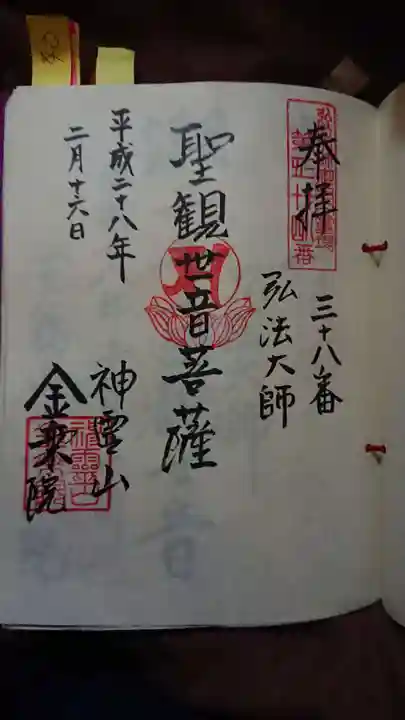 奉拝
三十八番
弘法大師
聖観世音菩薩
平成二十八年
二月十六日
神霊山
金乗院